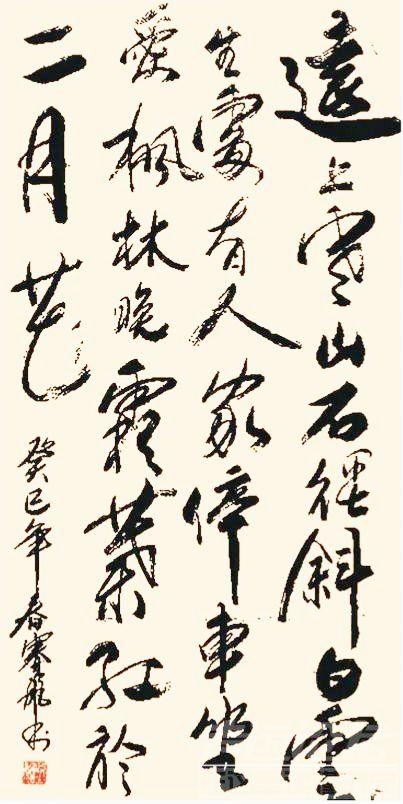 遠上寒山石徑斜白雲
生處有人家停車坐
愛楓林晚霜葉紅於
二月花
癸巳年春